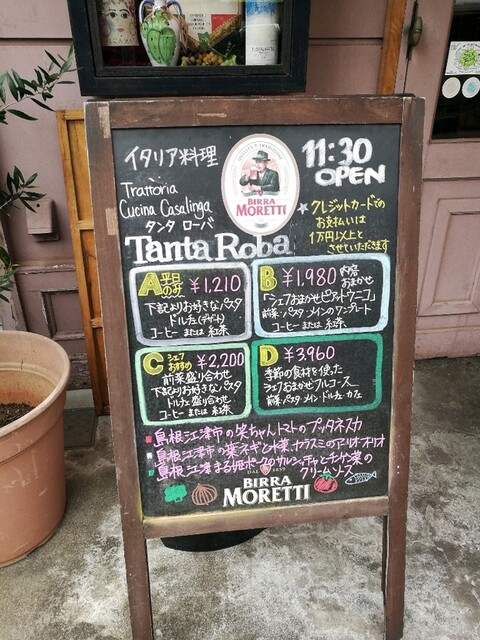 イタリア料理
Trattoria
Cucina Casalinga
タンタ ローバ
Tanta Roba
BIRRA
MORETTI
11:30
OPEN
★クレジットカードでの
お支払いは
1万円以上と
させていただきます
A 平日のみ ¥1,210
下記よりお好きなパスタ
ドルチェ(デザート)
コーヒー または 紅茶
B ¥1,980 内容おまかせ
「シェフおまかせピアットウニコ」
前菜・パスタ・メインのワンプレート
コーヒー または 紅茶
C シェフおすすめ ¥2,200
前菜盛り合わせ
下記よりお好きなパスタ
ドルチェ盛り合わせ
コーヒー または 紅茶
D ¥3,960
季節の食材を使った
シェフおまかせフルコース
前菜・パスタ・メイン・ドルチェ・カフェ
島根江津市の笑ちゃんトマトのプッタネスカ
島根江津市の葉ネギと水菜、カラスミのアーリオ・オーリオ
島根江津まる姫ポークのサルシッチャとチンゲン菜の
クリームソース
BIRRA
MORETTI